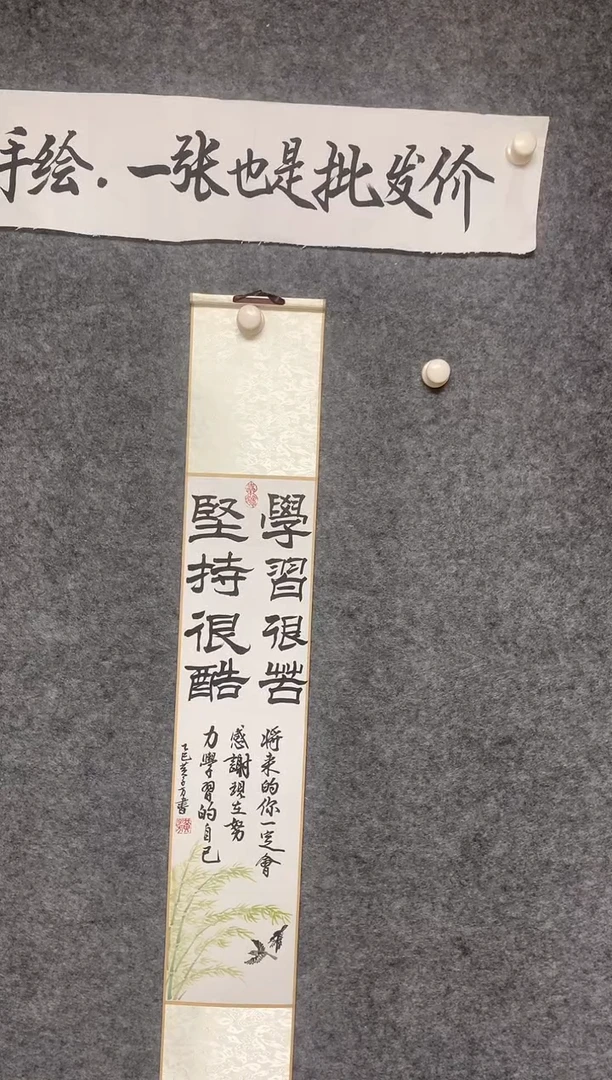 手绘.一张也是批发价
學習很苦
堅持很酷
将来的你一定會
感謝現在努
力學習的自己